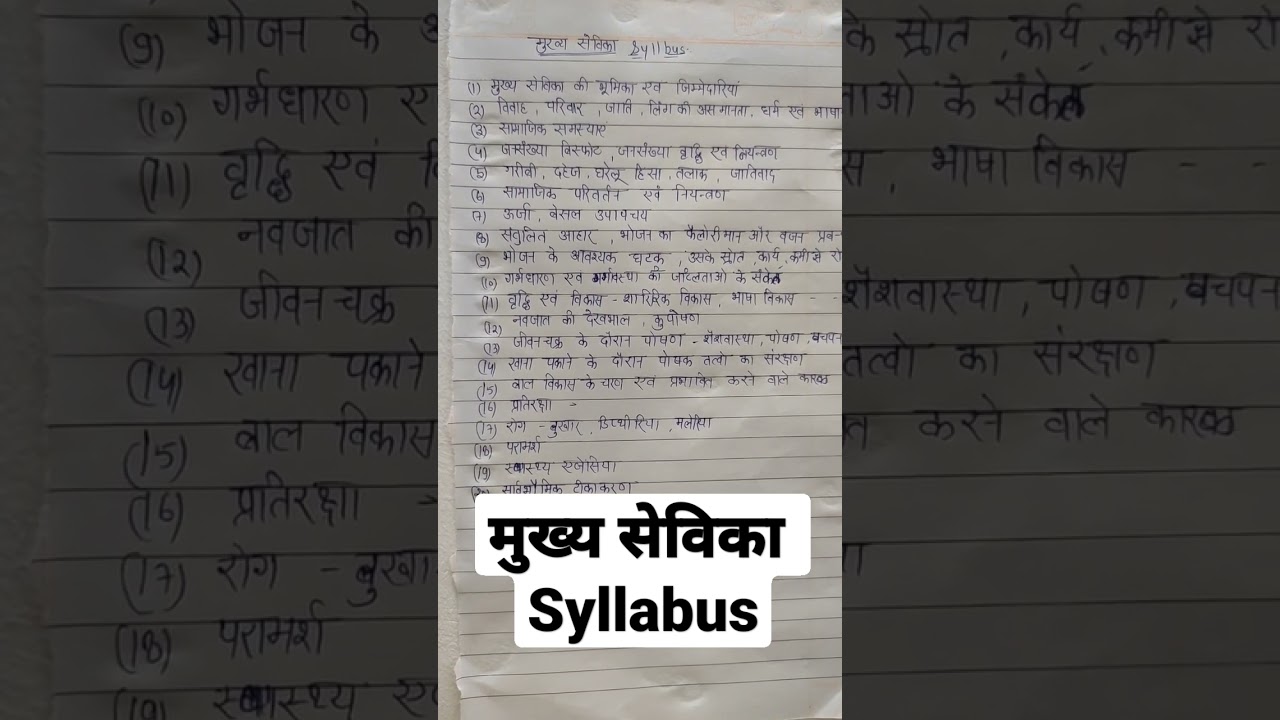 मुख्य सेविका Syllbus
(1) मुख्य सेविका की भूमिका एवं जिम्मेदारियां
(2) विवाह, परिवार, जाति, लिंग की असमानता, धर्म एवं भाषा
(3) सामाजिक समस्याएं
(4) जनसंख्या विस्फोट, जनसंख्या वृद्धि एवं नियन्त्रण
(5) गरीबी, दहेज, घरेलू हिंसा, तलाक, जातिवाद
(6) सामाजिक परिवर्तन एवं नियन्त्रण
(7) ऊर्जा, बेसल उपापचय
(8) संतुलित आहार, भोजन का कैलोरीमान और वजन प्रब
(9) भोजन के आवश्यक घटक, उसके स्रोत, कार्य, कमी से रो
(10) गर्भधारण एवं गर्भावस्था की जटिलताओ के संकेत
(11) वृद्धि एवं विकास - शारिरिक विकास, भाषा विकास - -
(12) नवजात की देखभाल, कुपोषण
(13) जीवनचक्र के दौरान पोषण - शैशवास्था, पोषण, बचपन
(14) खाना पकाने के दौरान पोषक तत्वो का संरक्षण
(15) बाल विकास के चरण एवं प्रभावित करने वाले कारक
(16) प्रतिरक्षा -
(17) रोग - बुखार, डिप्थीरिया, मलेरिया
(18) परामर्श
(19) स्वास्थ्य एजेंसिया
सार्वभौमिक टीकाकरण
मुख्य सेविका
Syllabus